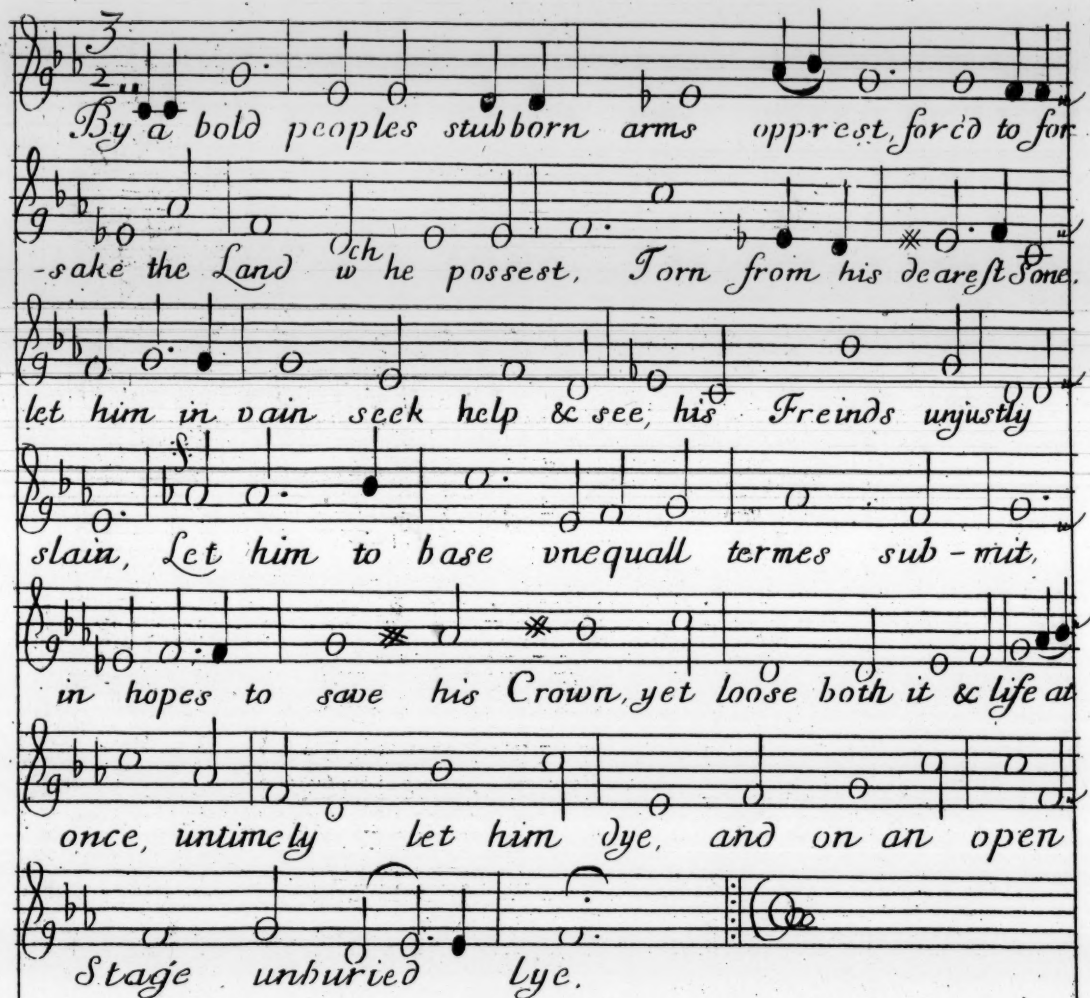 3
2
By a bold peoples stubborn arms opprest, forc'd to for
-sake the Land wch he possest, Torn from his dearest Sone.
let him in vain seek help & see, his Freinds unjustly
slain, Let him to base vnequall termes sub-mit,
in hopes to save his Crown, yet loose both it & life at
once, untimely let him dye, and on an open
Stage unburied lye.